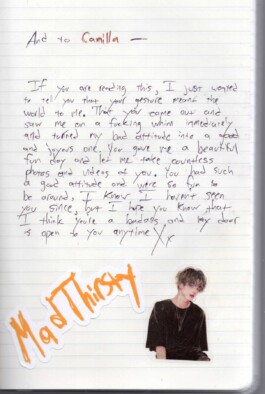 And to Camilla —
If you are reading this, I just wanted
to tell you that your gesture meant the
world to me. That you come out and
saw me on a fucking whim immediately
and turned my bad attitude into a good
and joyous one. You gave me a beautiful
fun day and let me take countless
photos and videos of you. You had such
a good attitude and were so fun to
be around, I know I haven't seen
you since, but I hope you know that
I think you're a badass and my door
is open to you anytime
Mad Thirsty